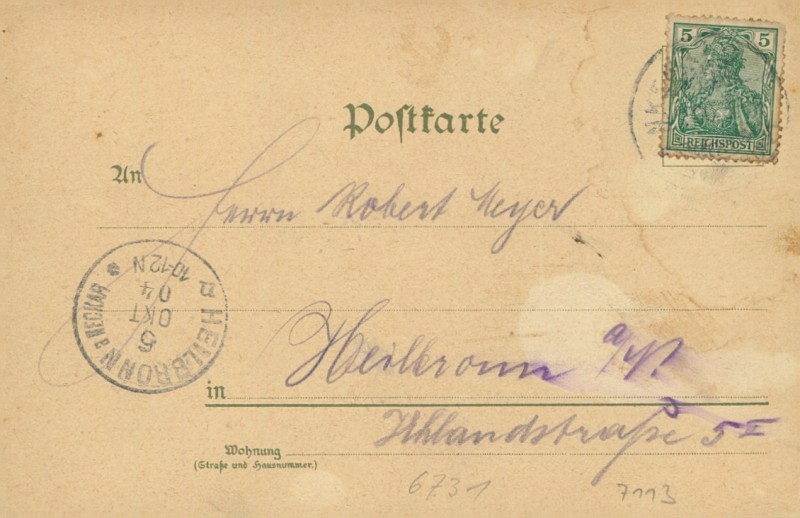 5 5
REICHSPOST
Postkarte
An
Herrn Robert Meyer
HEILBRONN a. NECKAR
5
OKT
04
10-12 N
in Heilbronn a/N.
Uhlandstraße 5 II
Wohnung
(Straße und Hausnummer.)
6731
7113